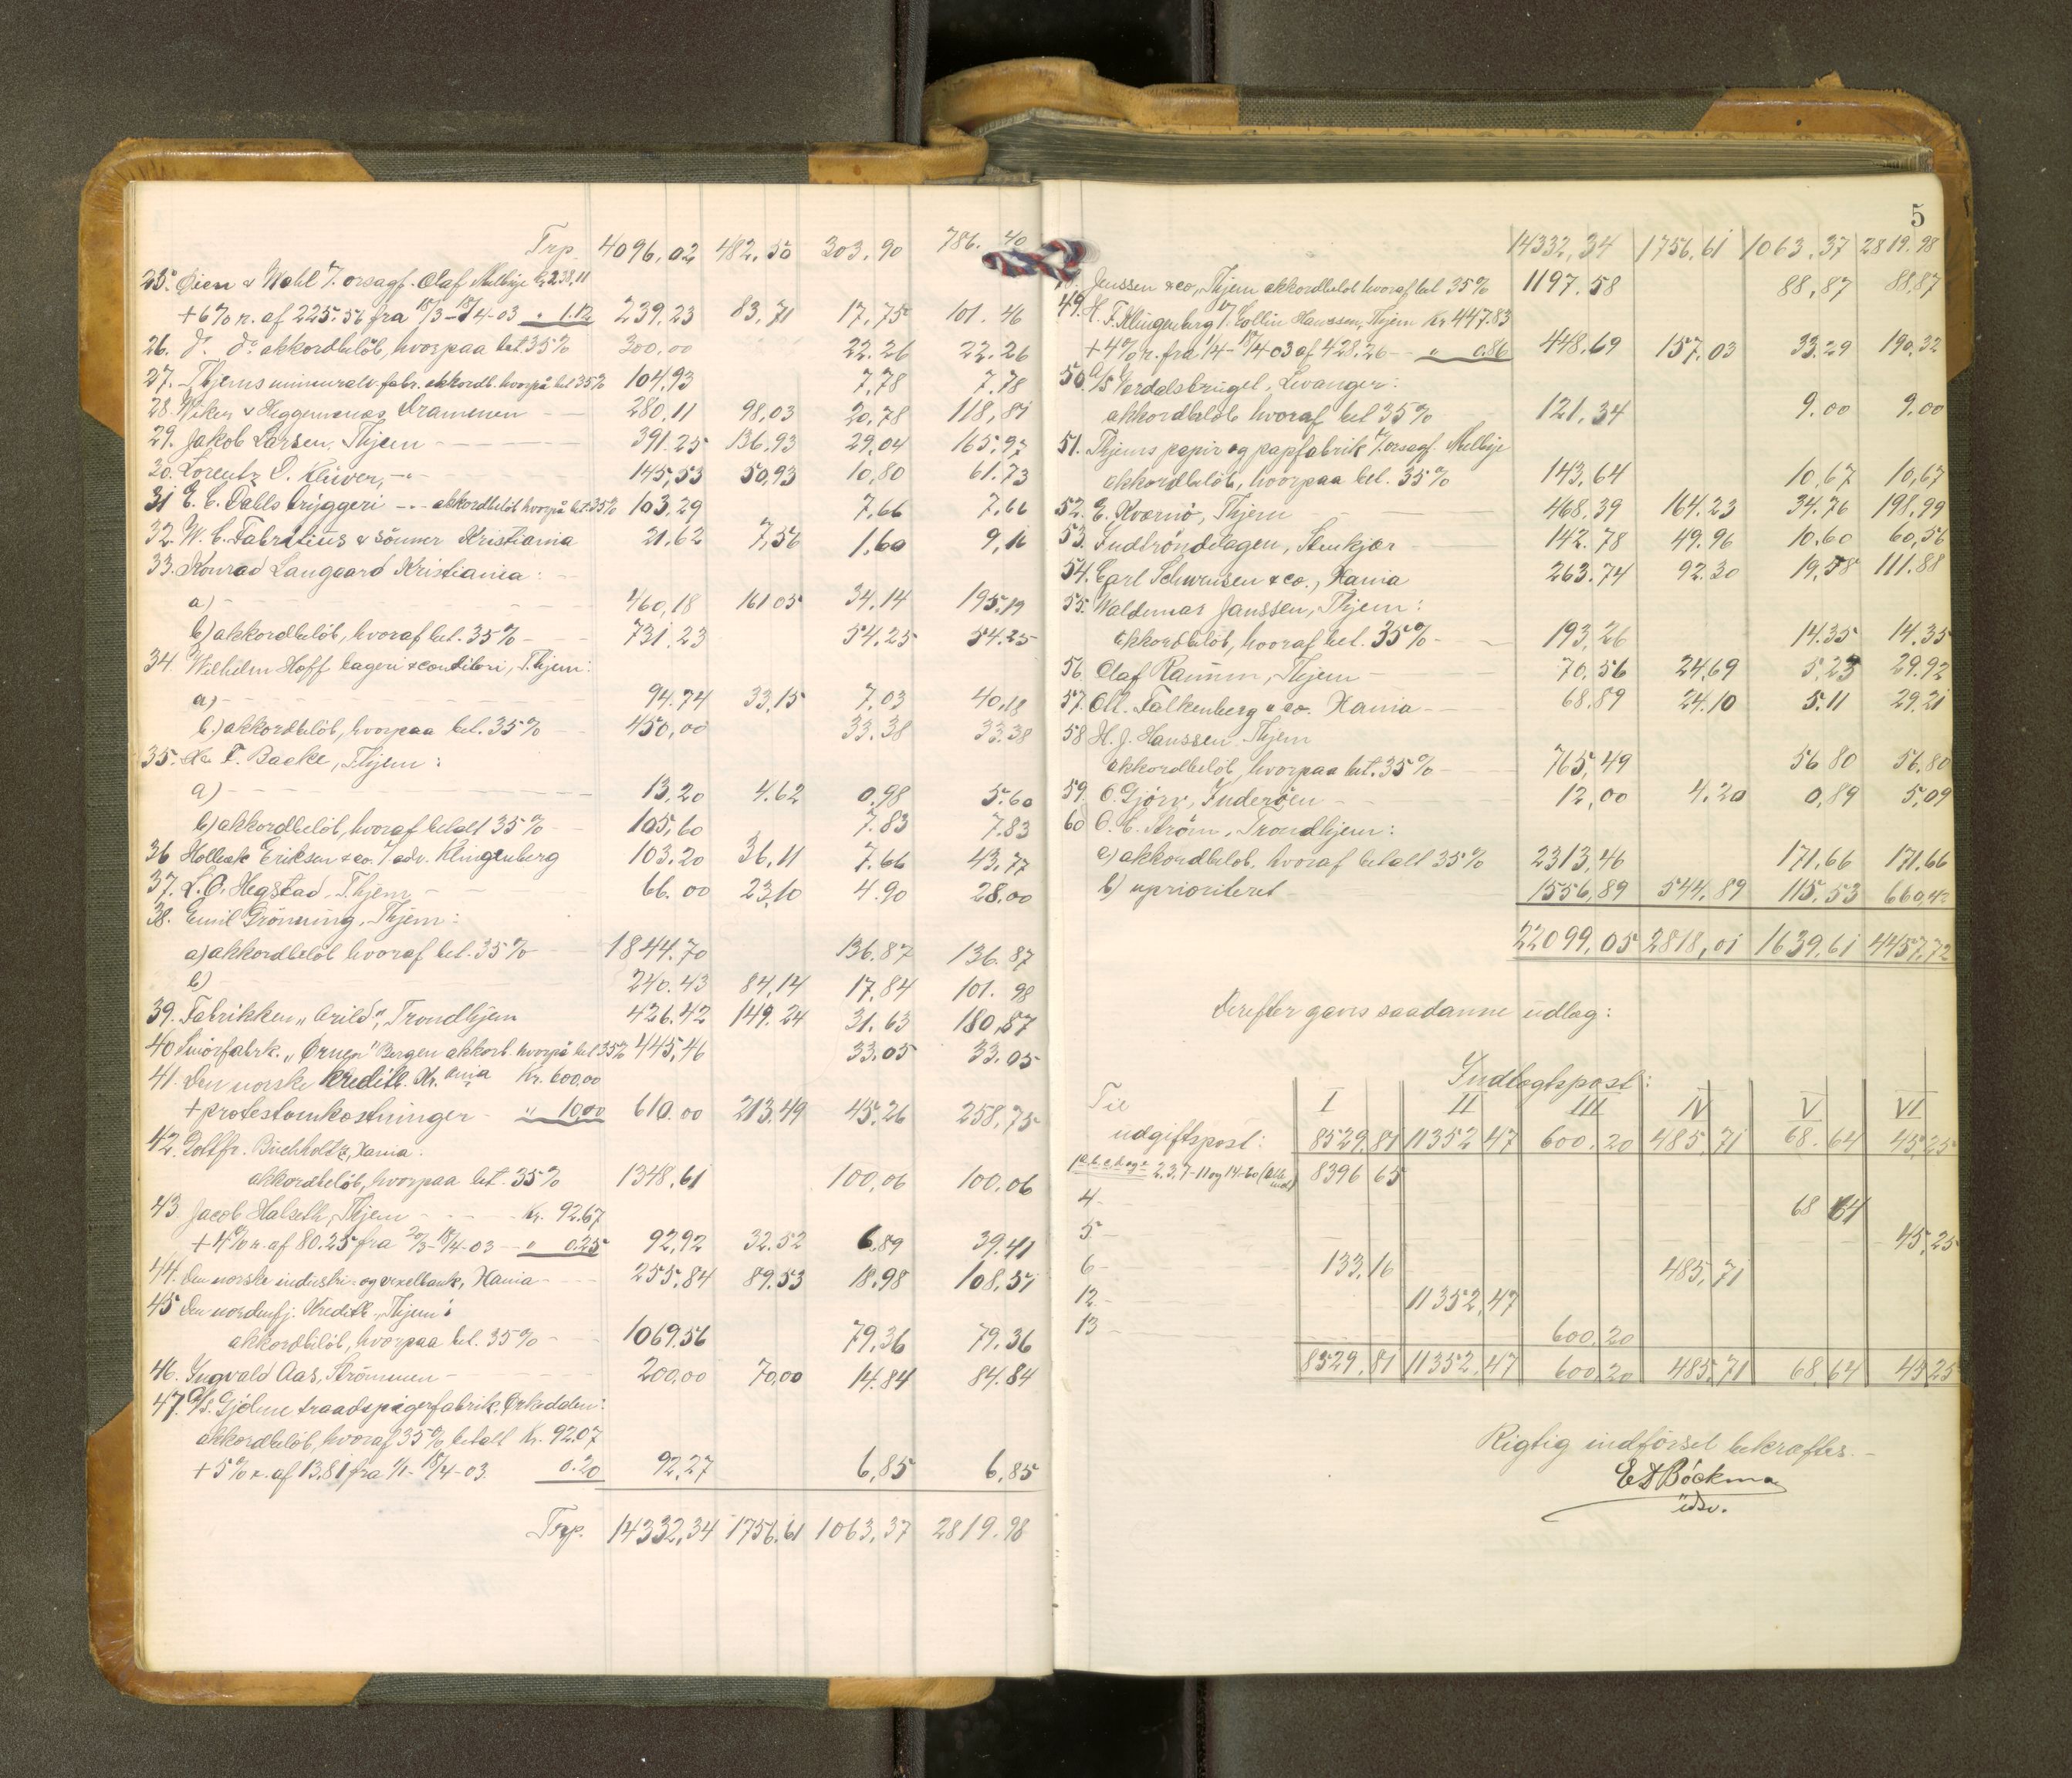 Trp. 4096,02 482,50 303,90 786.40
25. Øien & Wahl v. orsagf. Olaf Mellbye Kr 238,11
+6% r. af 225.56 fra 18/3-18/4-03 " 1.12 239,23 83,71 17,75 101.46
26. do. do akkordbelöb, hvorpaa bet. 35% 300,00 22.26 22.26
27. Thjems mineralv. fabr. akkordb. hvorpå bet 35% 104,93 7,78 7.78
28. Wiker & Heggenæs, Drammen 280.11 98,03 20,78 118,81
29. Jakob Larsen, Thjem 391.25 136,93 29,04 165,97
30. Lorentz D. Klüwer, -"- 145,53 50,93 10,80 61.73
31 E. C. Dahls bryggeri -"- akkordbelöb hvorpå bet. 35% 103,29 7,66 7,66
32. W. C. Fabritius & sönner Kristiania 21,62 7,56 1,60 9,16
33. Konrad Langaard Kristiania:
a) 460,18 161 05 34,14 195,19
b) akkordbelöb, hvoraf bet. 35% 731.23 54.25 54.25
34. Wilhelm Hoff bageri & conditori, Thjem:
a) 94.74 33,15 7,03 40,18
b.) akkordbelöb, hvorpaa bet. 35% 450,00 33.38 33.38
35. F. Backe, Thjem:
a) 13,20 4.62 0,98 5.60
b) akkordbelöb, hvoraf betalt 35% 105,60 7.83 7.83
36 Holbæk Eriksen & co. v/ adv. Klingenberg 103.20 36,11 7,66 43,77
37. L. O. Hegstad, Thjem 66.00 23,10 4.90 28,00
38. Emil Grönning, Thjem:
a) akkordbelöb hvoraf bet. 35% 1844.70 136.87 136.87
b) 240.43 84,14 17,84 101.98
39. Fabrikken „Arild", Trondhjem 426.42 149.24 31.63 180,87
40 Smörfabrk. „Örnen" Bergen akkord. hvorpå bet 35% 445,46 33.05 33.05
41. Den norske Kreditb. Kr.ania Kr. 600,00
+protestomkostninger " 10,00 610.00 213,49 45,26 258,75
42. Gottfr. Buchholtz, Xania:
akkordbelöb, hvorpaa bet. 35% 1348,61 100,06 100.06
43. Jacob Halseth, Thjem Kr. 92.67
+4% r. af 80.25 fra 20/3-18/4-03 " 0.25 92,92 32.52 6.89 39.41
44. Den norske industri- og vexelbank, Xania 255,84 89.53 18,98 108,51
45 Den nordenfj. Kreditb., Thjem:
akkordbelöb, hvorpaa bet. 35% 1069.56 79,36 79.36
46. Ingvald Aas, Strömmen 200,00 70,00 14.84 84.84
47. A/s. Gjölme traadspigerfabrik, Örkedalen:
akkordbelöb, hvoraf 35% betalt Kr. 92.07
+5% r. af 13,81 fra 1/1-18/4-03. 0.20 92,27 6,85 6,85
Trp. 14332,34 1756.61 1063,37 2819.98
5
14332,34 1756,61 1063.37 2819.98
Janssen & co, Thjem akkordbelöb hvoraf bet 35% 1197.58 88,87 88,87
49. H. F. Klingenberg v/ Collin Hanssen, Thjem Kr 447.83
+4% r. fra 1/4-18/4 03 af 428,26 " 0.86 448,69 157,03 33,29 190,32
50. A/S Værdalsbruget, Levanger:
akkordbelöb hvoraf bet 35% 121,34 9.00 9.00
51. Thjems papir og papfabrik v/ orsagf. Mellbye
akkordbelöb, hvorpaa bet. 35% 143,64 10,67 10,67
52. E. Kværnö, Thjem 468,39 164.23 34.76 198,99
53. Indtröndelagen, Stenkjær 142.78 49.96 10.60 60,56
54. Carl Schwensen & co., Xania 263.74 92.30 19,58 111.88
55. Waldemar Janssen, Thjem:
akkordbelöb, hvoraf bet. 35% 193,26 14.35 14.35
56. Olaf Ramm, Thjem 70,56 24,69 5,23 29.92
57. Falkenberg & co. Xania 68.89 24.10 5.11 29.21
58 H. J. Hanssen Thjem
akkordbelöb, hvorpaa bet. 35% 765,49 56 80 56,80
59. O. Gjörv, Inderöen 12,00 4.20 0,89 5,09
60 O. C. Ström, Trondhjem:
a) akkordbelöb, hvoraf betalt 35% 2313,46 171,66 171,66
b) uprioriteret 1556,89 544,89 115,53 660,42
22099,05 2818,01 1639,61 4457,72
Derefter gøres saadanne udlæg:
Indtægtspost:
Til I II III IV V VI
udgiftspost: 8529,81 11352 47 600.20 485,71 68.64 45,25
2.3.7-11 og 14-60 8396 65
4 68 64
5 45,25
6 133,16 485,71
12 11352,47
13 600.20
8529.81 11352.47 600,20 485,71 68,64 45 25
Rigtig indförsel bekræftes.
E D Böckma
udsv.